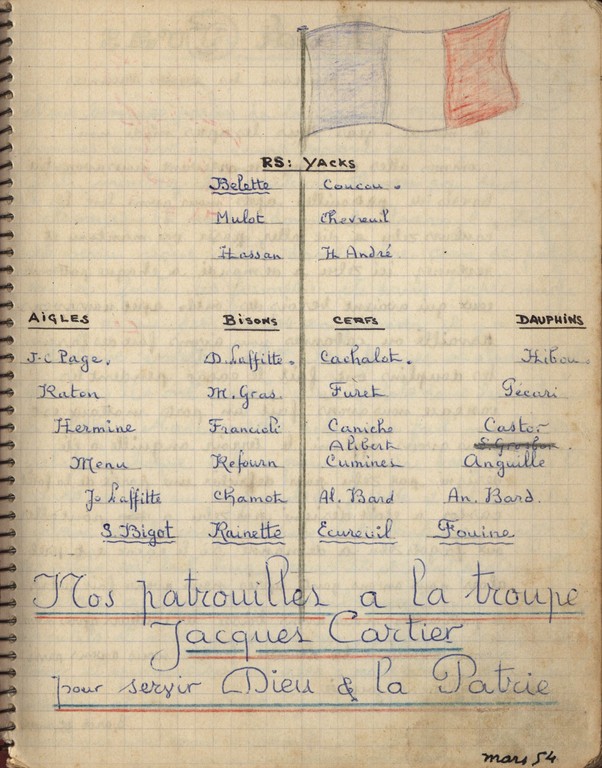 RS: YACKS
Belette Coucou.
Mulot Chevreuil
Hassan H. André
AIGLES BISONS CERFS DAUPHINS
J.C Page. D. Laffitte. Cachalot. Hibou.
Raton M. Gras Furet Pécari
Hermine Francioli Caniche Castor
Alibert
Menu Refourn Cumines Anguille
Je Laffitte Chamok Al. Bard An. Bard.
S. Bigot Rainette Ecureuil Fouine
Nos patrouilles a la troupe
Jacques Cartier
pour servir Dieu & la Patrie
mars 54